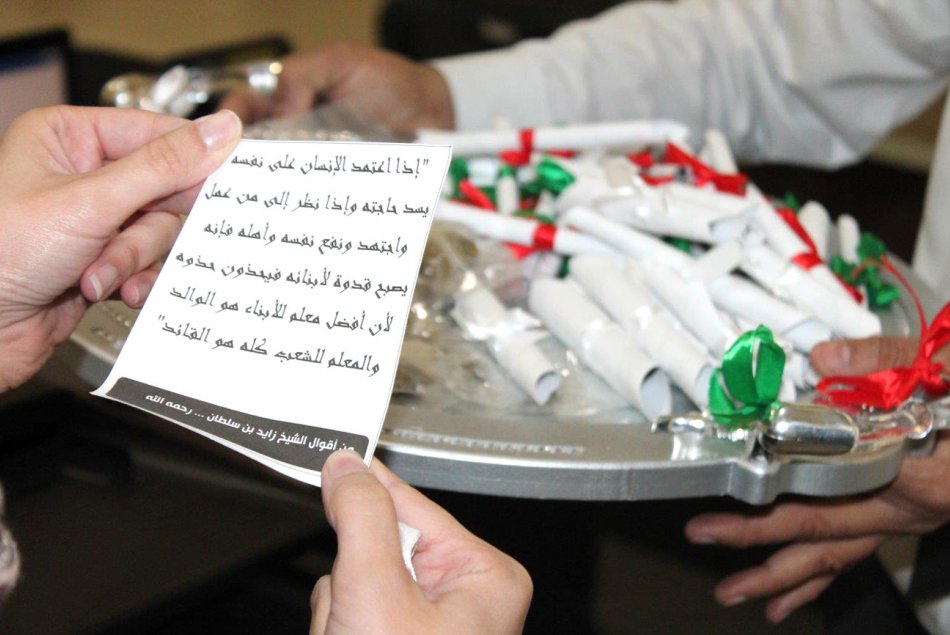 "إذا اعتمد الإنسان على نفسه
يسد حاجته وإذا نظر إلى من عمل
واجتهد ونفع نفسه وأهله فإنه
يصبح قدوة لأبنائه فيحذون حذوه
لأن أفضل معلم للأبناء هو الوالد
والمعلم للشعب كله هو القائد"
من أقوال الشيخ زايد بن سلطان ... رحمه الله